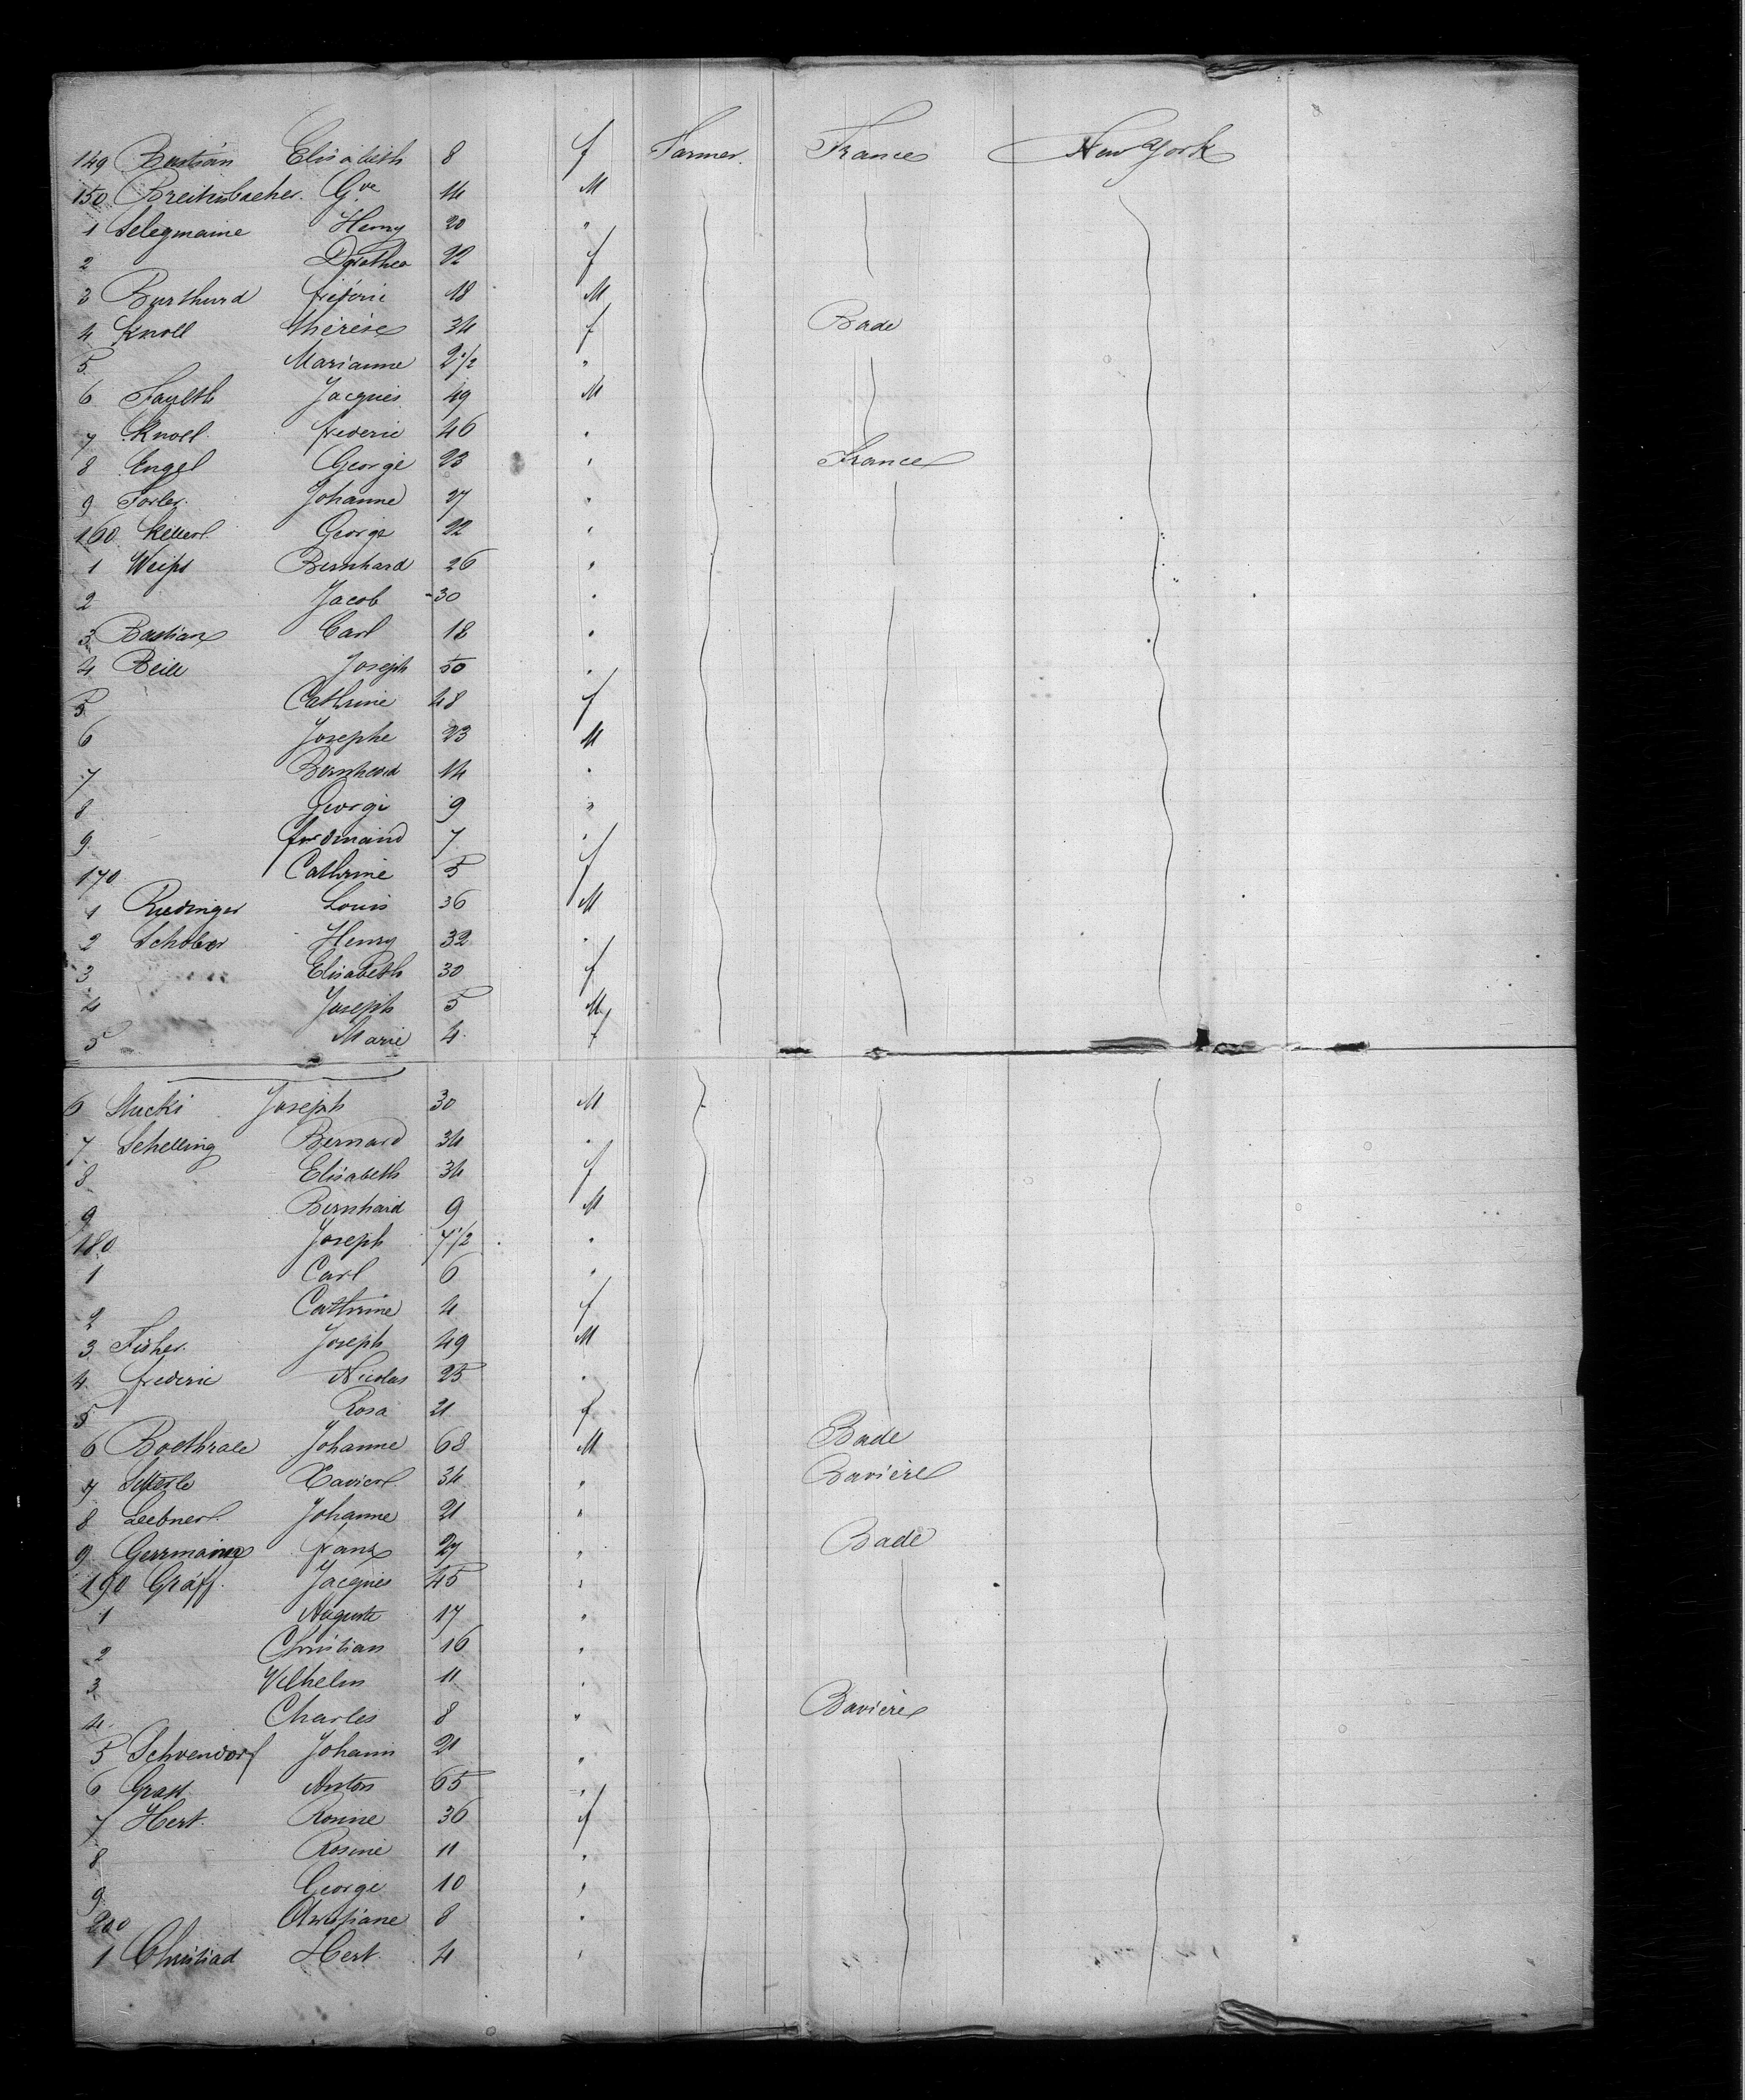 149 Bastian Elisabeth 8 f Farmer. France New York
150 Breitenbacher. Gve 14 M
1 Selegmaine Henry 20 "
2 Dorothea 22 f
3 Burthurd frederic 18 M
4 Knoll thérèse 34 f Bade
5. Marianne 2 1/2 "
6. Faulth Jacques 49 M
7 Knoll. frederic 46 "
8 Engel George 23 " France
9 Forler. Johanne 27 "
160 Kellerl George 22 "
1 Weihs Bernhard 26 "
2 Jacob 30 "
3. Bastian Carl 18 "
4 Beill Joseph 50 "
5. Cathrine 48 f
6 Josephe 23 M
7 Bernhard 14 "
8 George 9 "
9. ferdinand 7 "
170 Cathrine 5 f
1 Riedinger Louis 36 M
2 Schober Henry 32 "
3. Elisabeth 30 f
4 Joseph 5 M
5 Marie 4. f
6 Stucki Joseph 30 M
7. Schelling Bernard 34 "
8 Elisabeth 34 f
9 Bernhard 9 M
180 Joseph 7 1/2 "
1 Carl 6 "
2 Cathrine 4 f
3. Fisher. Joseph 49 M
4. frederic Nicolas 25 "
5 Rosa 21 f
6 Boethrale Johanne 68 M Bade
7 Setterle Xavier 34 " Bavière
8 Leebner Johanne 21 "
9 Germaine franz 27 " Bade
190 Gräff. Jacques 45 "
1 Auguste 17 "
2 Christian 16 "
3. Vilhelm 11 "
4. Charles 8 " Bavière
5 Schoendorf Johann 21 "
6 Grass Anton 65 "
7 Hert. Ronne 36 f
8 Rosine 11 "
9. George 10 "
200 Christiane 8 "
1 Christiad Hert. 4 "